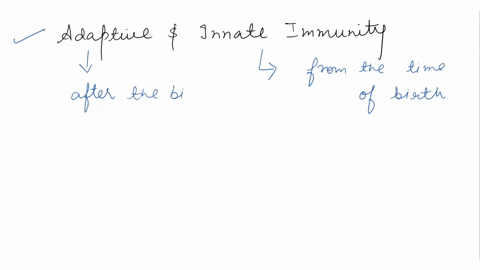 Adaptive & Innate Immunity
from the time
after the bi
of birth